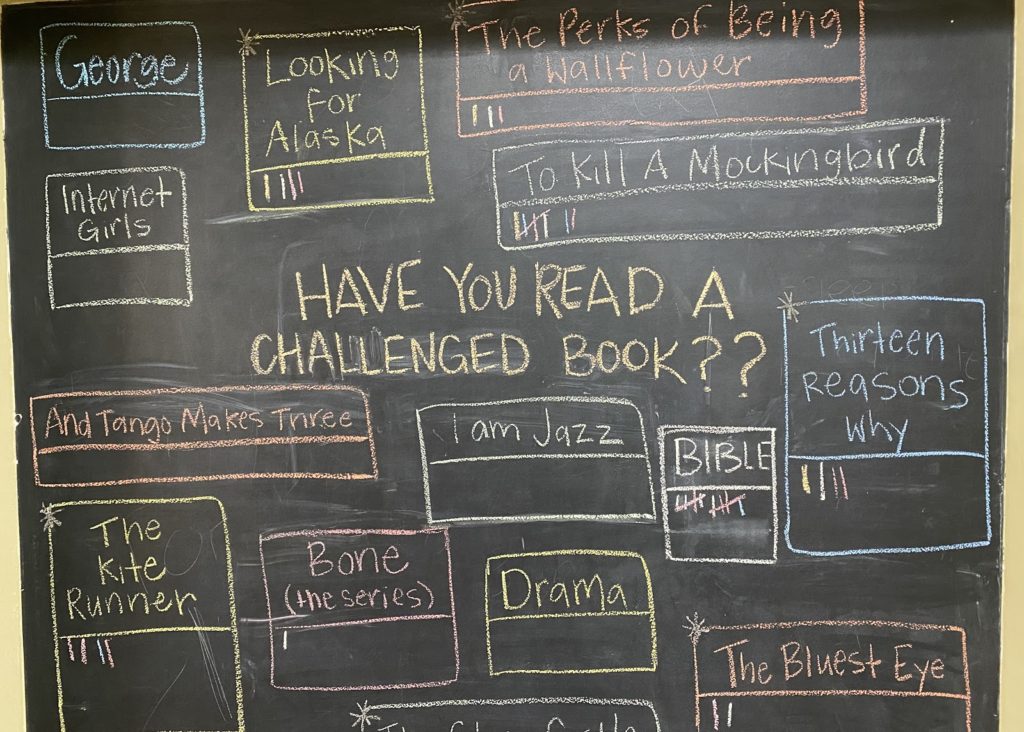 George
Looking
for
Alaska
The Perks of Being
a Wallflower
To Kill A Mockingbird
Internet
Girls
HAVE YOU READ A
CHALLENGED BOOK??
Thirteen
Reasons
Why
And Tango Makes Three
I am Jazz
BIBLE
The
Kite
Runner
Bone
(the series)
Drama
The Bluest Eye
The Glass Castle